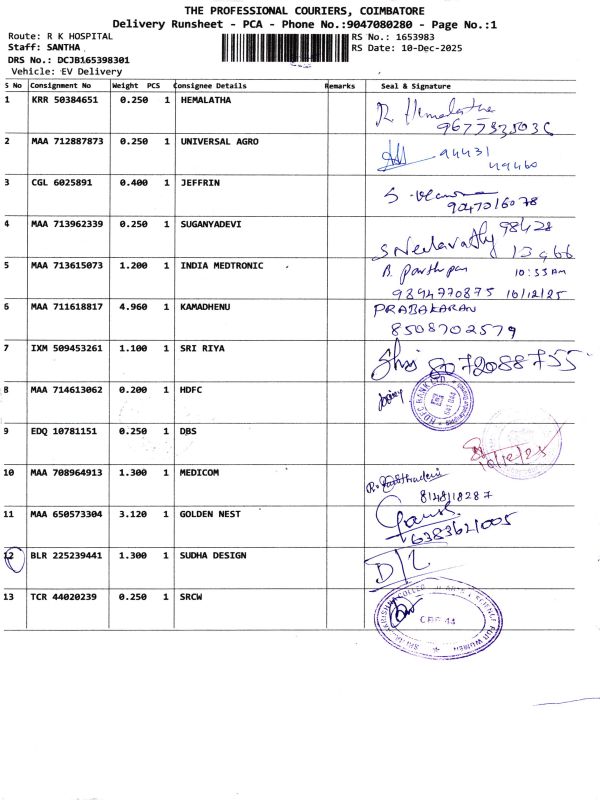 THE PROFESSIONAL COURIERS, COIMBATORE
Delivery Runsheet - PCA - Phone No.:9047080280 - Page No.:1
Route: R K HOSPITAL
RS No.: 1653983
Staff: SANTHA
RS Date: 10-Dec-2025
DRS No.: DCJB165398301
Vehicle: EV Delivery
S No Consignment No Weight PCS Consignee Details Remarks Seal & Signature
1 KRR 50384651 0.250 1 HEMALATHA R. Hemalatha
2 MAA 712887873 0.250 1 UNIVERSAL AGRO 94431
49460
3 CGL 6025891 0.400 1 JEFFRIN S
9047016078
4 MAA 713962339 0.250 1 SUGANYADEVI 98428
S Neelavathy 13966
5 MAA 713615073 1.200 1 INDIA MEDTRONIC B. Parthipan 10:33 AM
9894770875 10/12/25
6 MAA 711618817 4.960 1 KAMADHENU PRABAKARAN
8508702579
7 IXM 509453261 1.100 1 SRI RIYA 8072088755
8 MAA 714613062 0.200 1 HDFC HDFC BANK LTD
9 EDQ 10781151 0.250 1 DBS 10/12/25
10 MAA 708964913 1.300 1 MEDICOM
8148118287
11 MAA 650573304 3.120 1 GOLDEN NEST
6383621005
12 BLR 225239441 1.300 1 SUDHA DESIGN
13 TCR 44020239 0.250 1 SRCW ARTS & SCIENCE FOR WOMEN